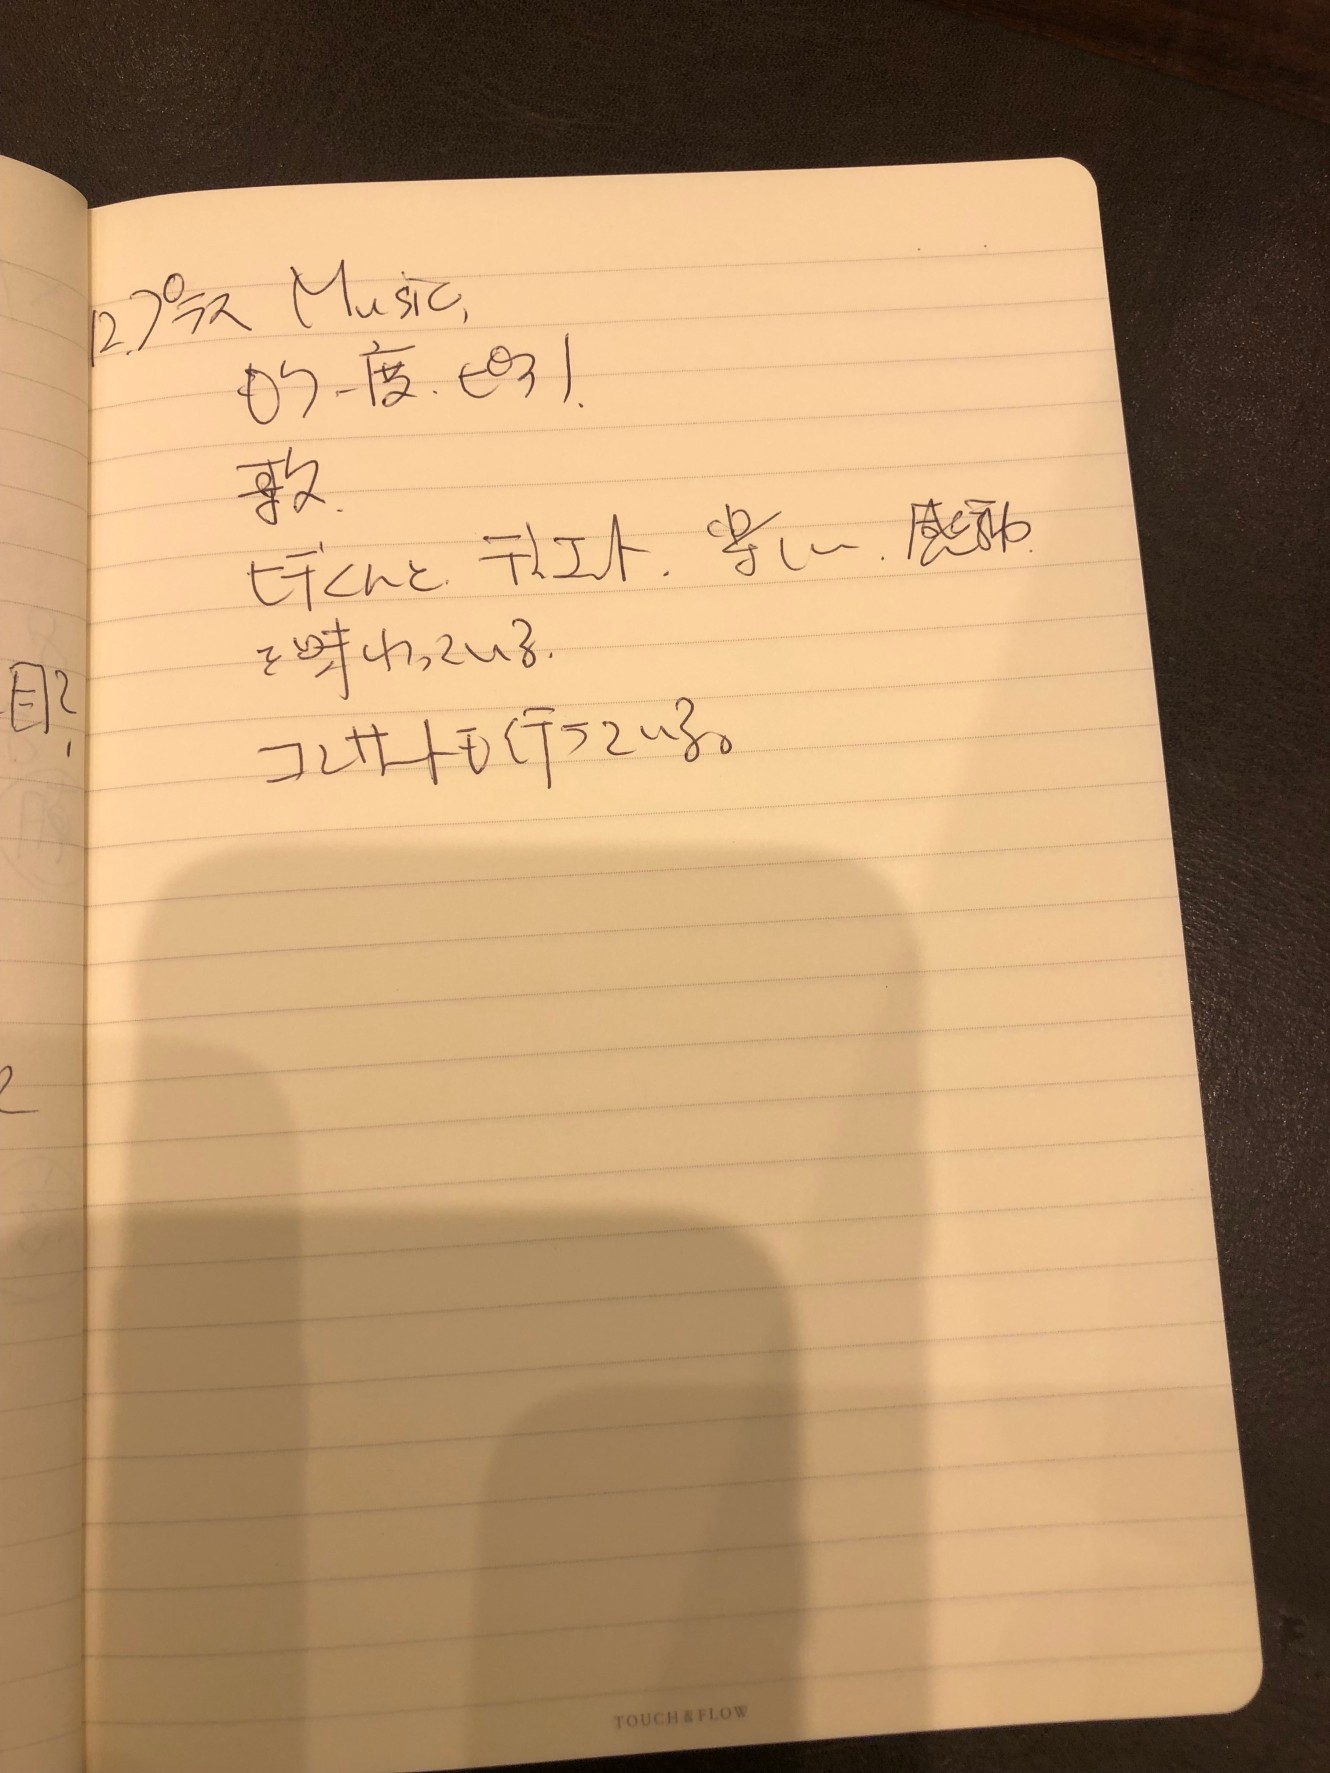 12.プラス Music,
もう一度.ピアノ.
歌.
ヒデくんと.デュエット.楽しい.感動.
を味わっている.
コンサートも行っている。
目?
TOUCH&FLOW